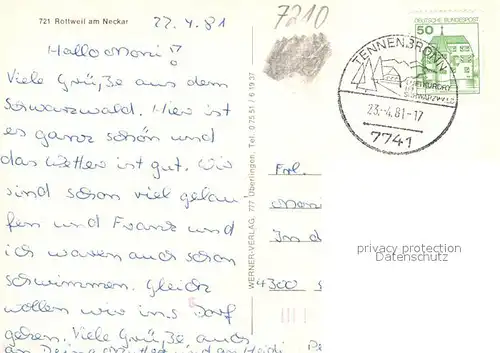 721 Rottweil am Neckar
22.4.81
7210
Hallo Moni!
Viele Grüße aus dem
Schwarzwald. Hier ist
es ganz schön und
das Wetter ist gut. Wir
sind schon viel gelau
fen und Franz und
ich waren auch schon
schwimmen. Gleich
wollen wir ins Dorf
gehen. Viele Grüße auch
an Deine Mutter und an Heidi
WERNER-VERLAG, 777 Überlingen, Tel. 0 75 51 / 6 19 37
DEUTSCHE BUNDESPOST
50
TENNENBRONN
LUFTKURORT
IM
SCHWARZWALD
23.-4.81-17
7741
Frl.
Moni
In d
4300
privacy protection
Datenschutz